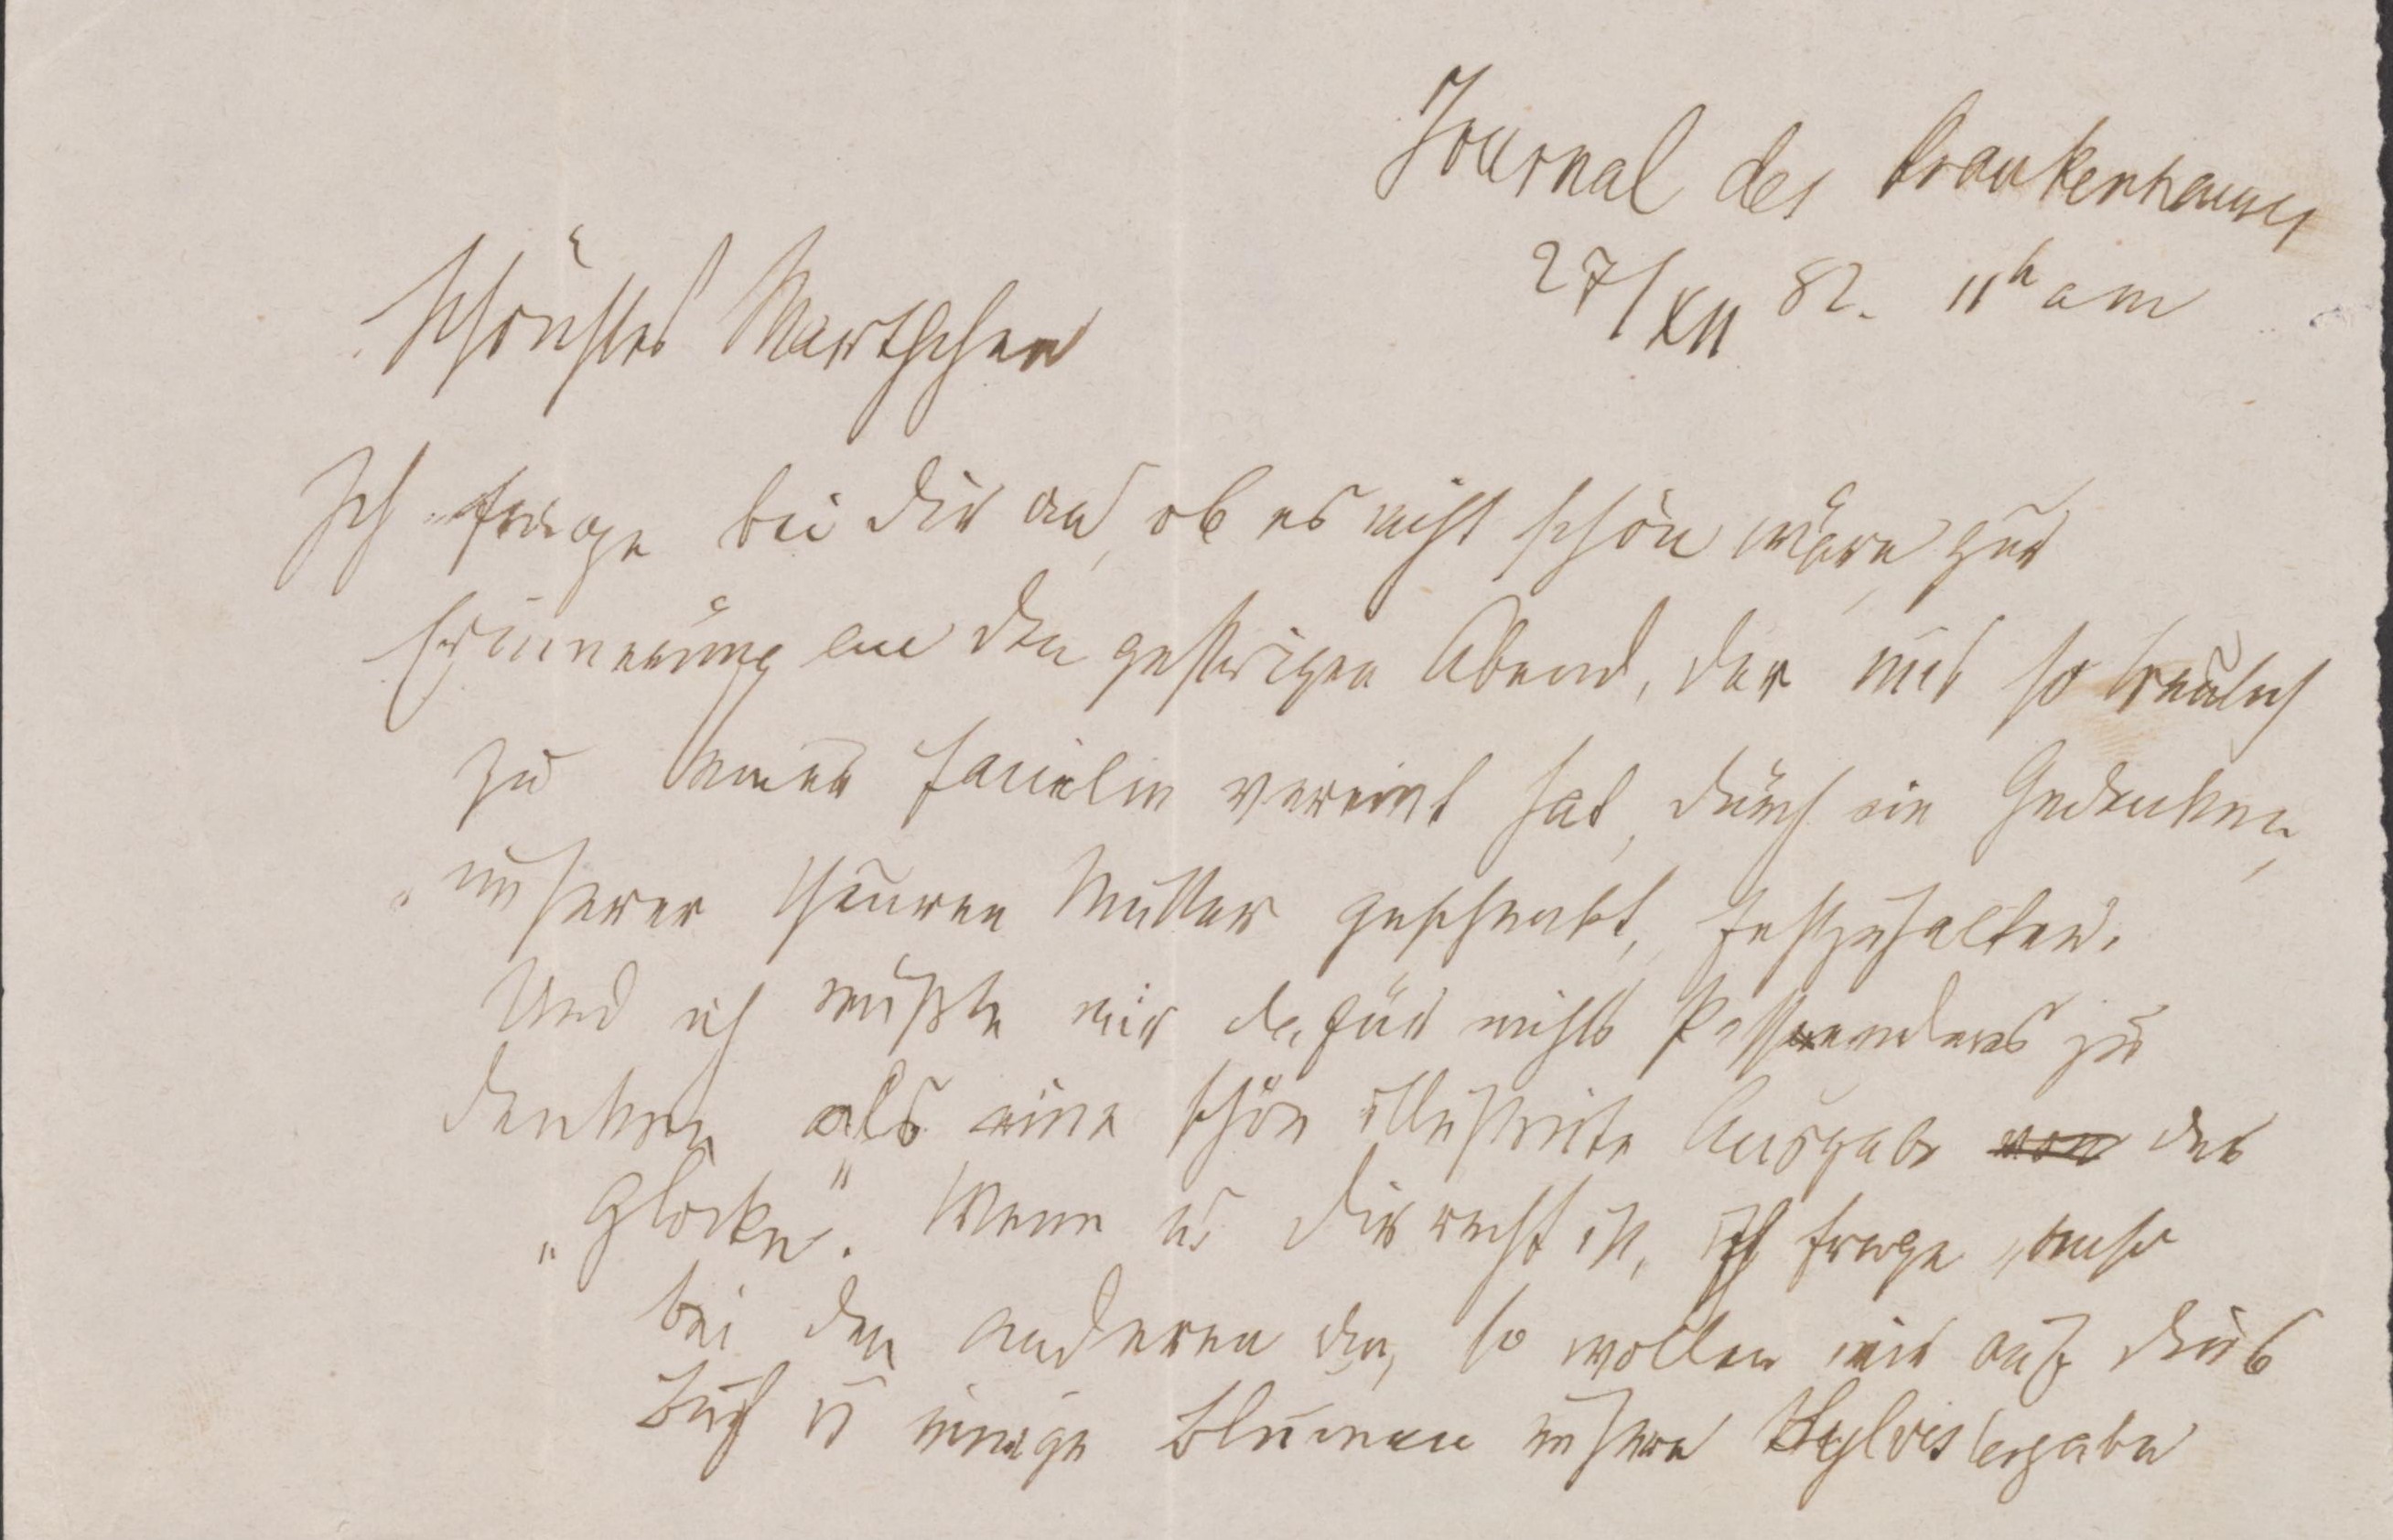 Journal des Krankenhauses
27/XII 82. 11h am
Schönstes Marthchen
Ich frage bei Dir an, ob es nicht schön wäre, zur
Erinnerung an den gestrigen Abend, der uns so traulich
zu einer Familie vereint hat, durch ein Gedenken,
unserer theuren Mutter geschenkt, festzuhalten.
Und ich wüßte mir dafür nichts Passenderes zu
denken als eine schön illustrirte Ausgabe von der
„Glocke". Wenn es Dir recht ist, ich frage
bei den anderen an, so wollen wir auf dies
Buch u einige Blumen unsere Sylvestergabe